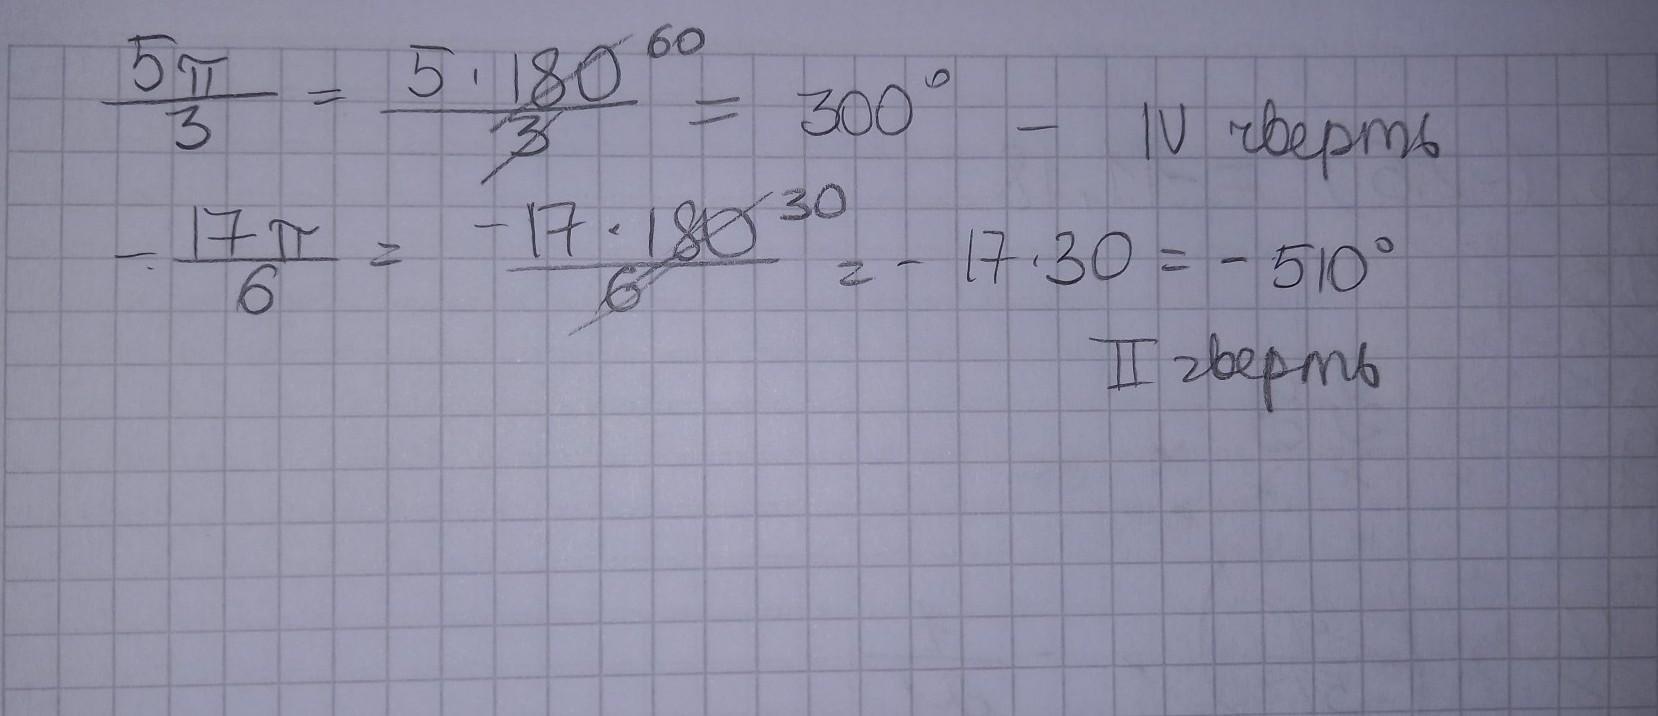 5π/3 = 5·180/3 60 = 300° - IV чверть
- 17π/6 = -17·180/6 30 = - 17·30 = - 510°
II чверть